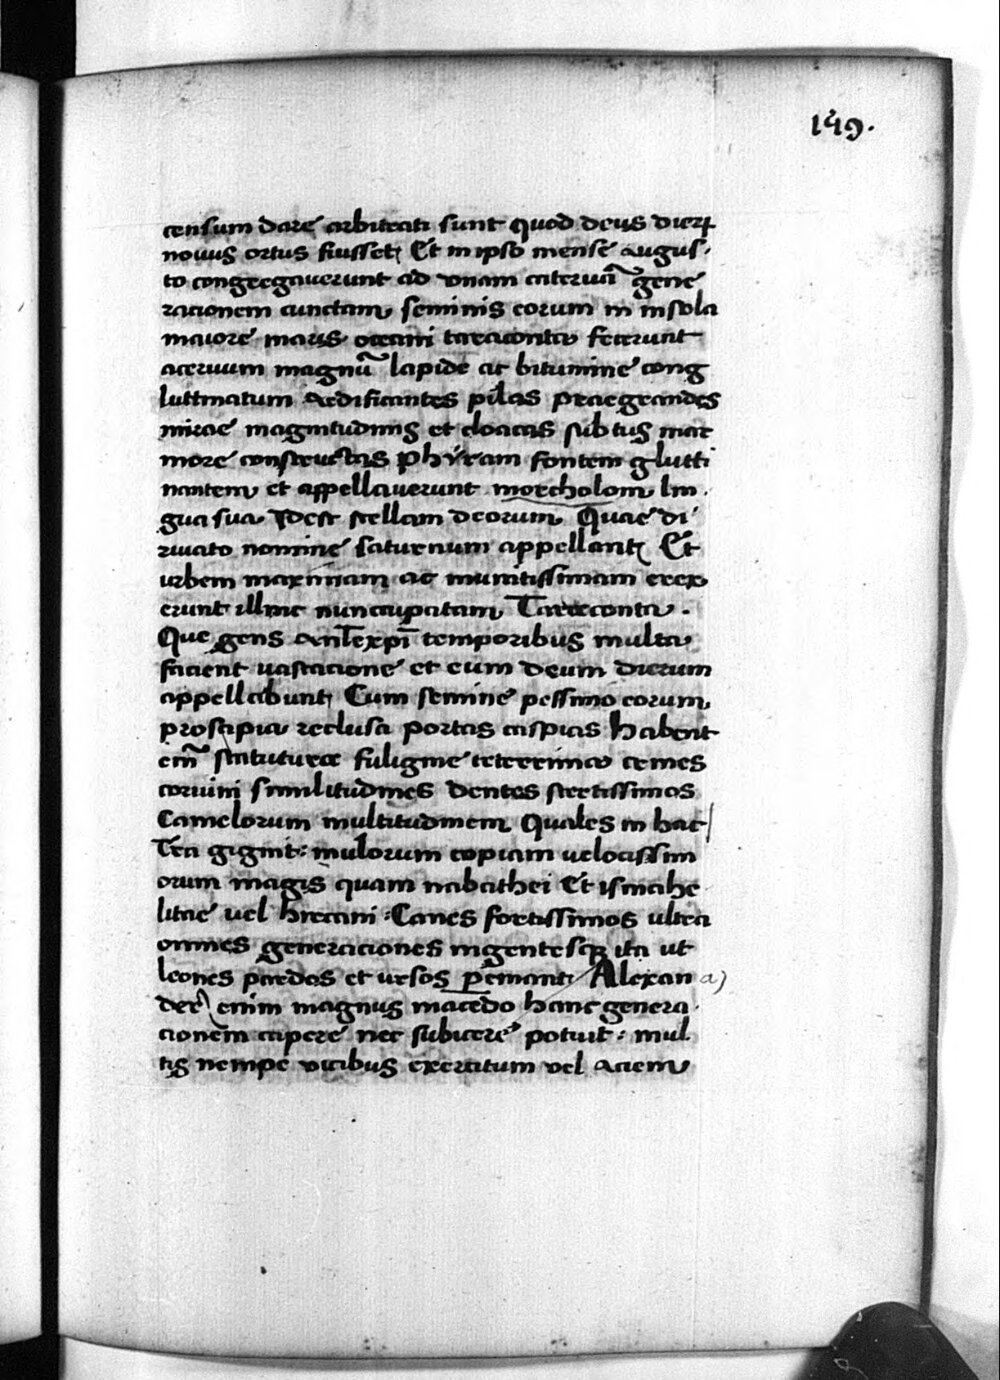 149.
censum dare arbitrati sunt quod deus dierꝝ
nouus ortus fuisset Et in ipso mense augus-
to congregauerunt ad vnam cateruā gene
racionem cunctam seminis eorum in insola
maiore maris oceani taraconta fecerunt
aceruum magnū lapide ac bitumine cong
luttinatum Aedificantes pilas praegrandes
mirae magnitudinis et cloacas subtus mar
more constructas phyram fontem glutti
nantem et appellauerunt morcholom lin-
gua sua Idest stellam deorum Quae di
riuato nomine saturnum appellant Et
urbem maximam ac munitissimam erex
erunt illinc nuncupatam Taraconta.
Que gens antexpī temporibus multa
facient uastacione et eum deum dierum
appellabunt Cum semine pessimo eorum
prosapia reclusa portas caspias Habent
em̄ staturae fuligine teterrima crines
coruini similitudines dentes stertissimos
Camelorum multitudinem Quales in hac
Tra gignit: mulorum copiam uelocissim
orum magis quam nabathei Et ismahe
litae vel hircani: Canes fortissimos ultra
omnes generaciones ingentesqꝫ ita ut
leones pardos et ursos p̄emant Alexan a)
der enim magnus macedo hanc genera-
cionem capere nec subicere potuit: mul
tis nempe vicibus exercitum vel aciem